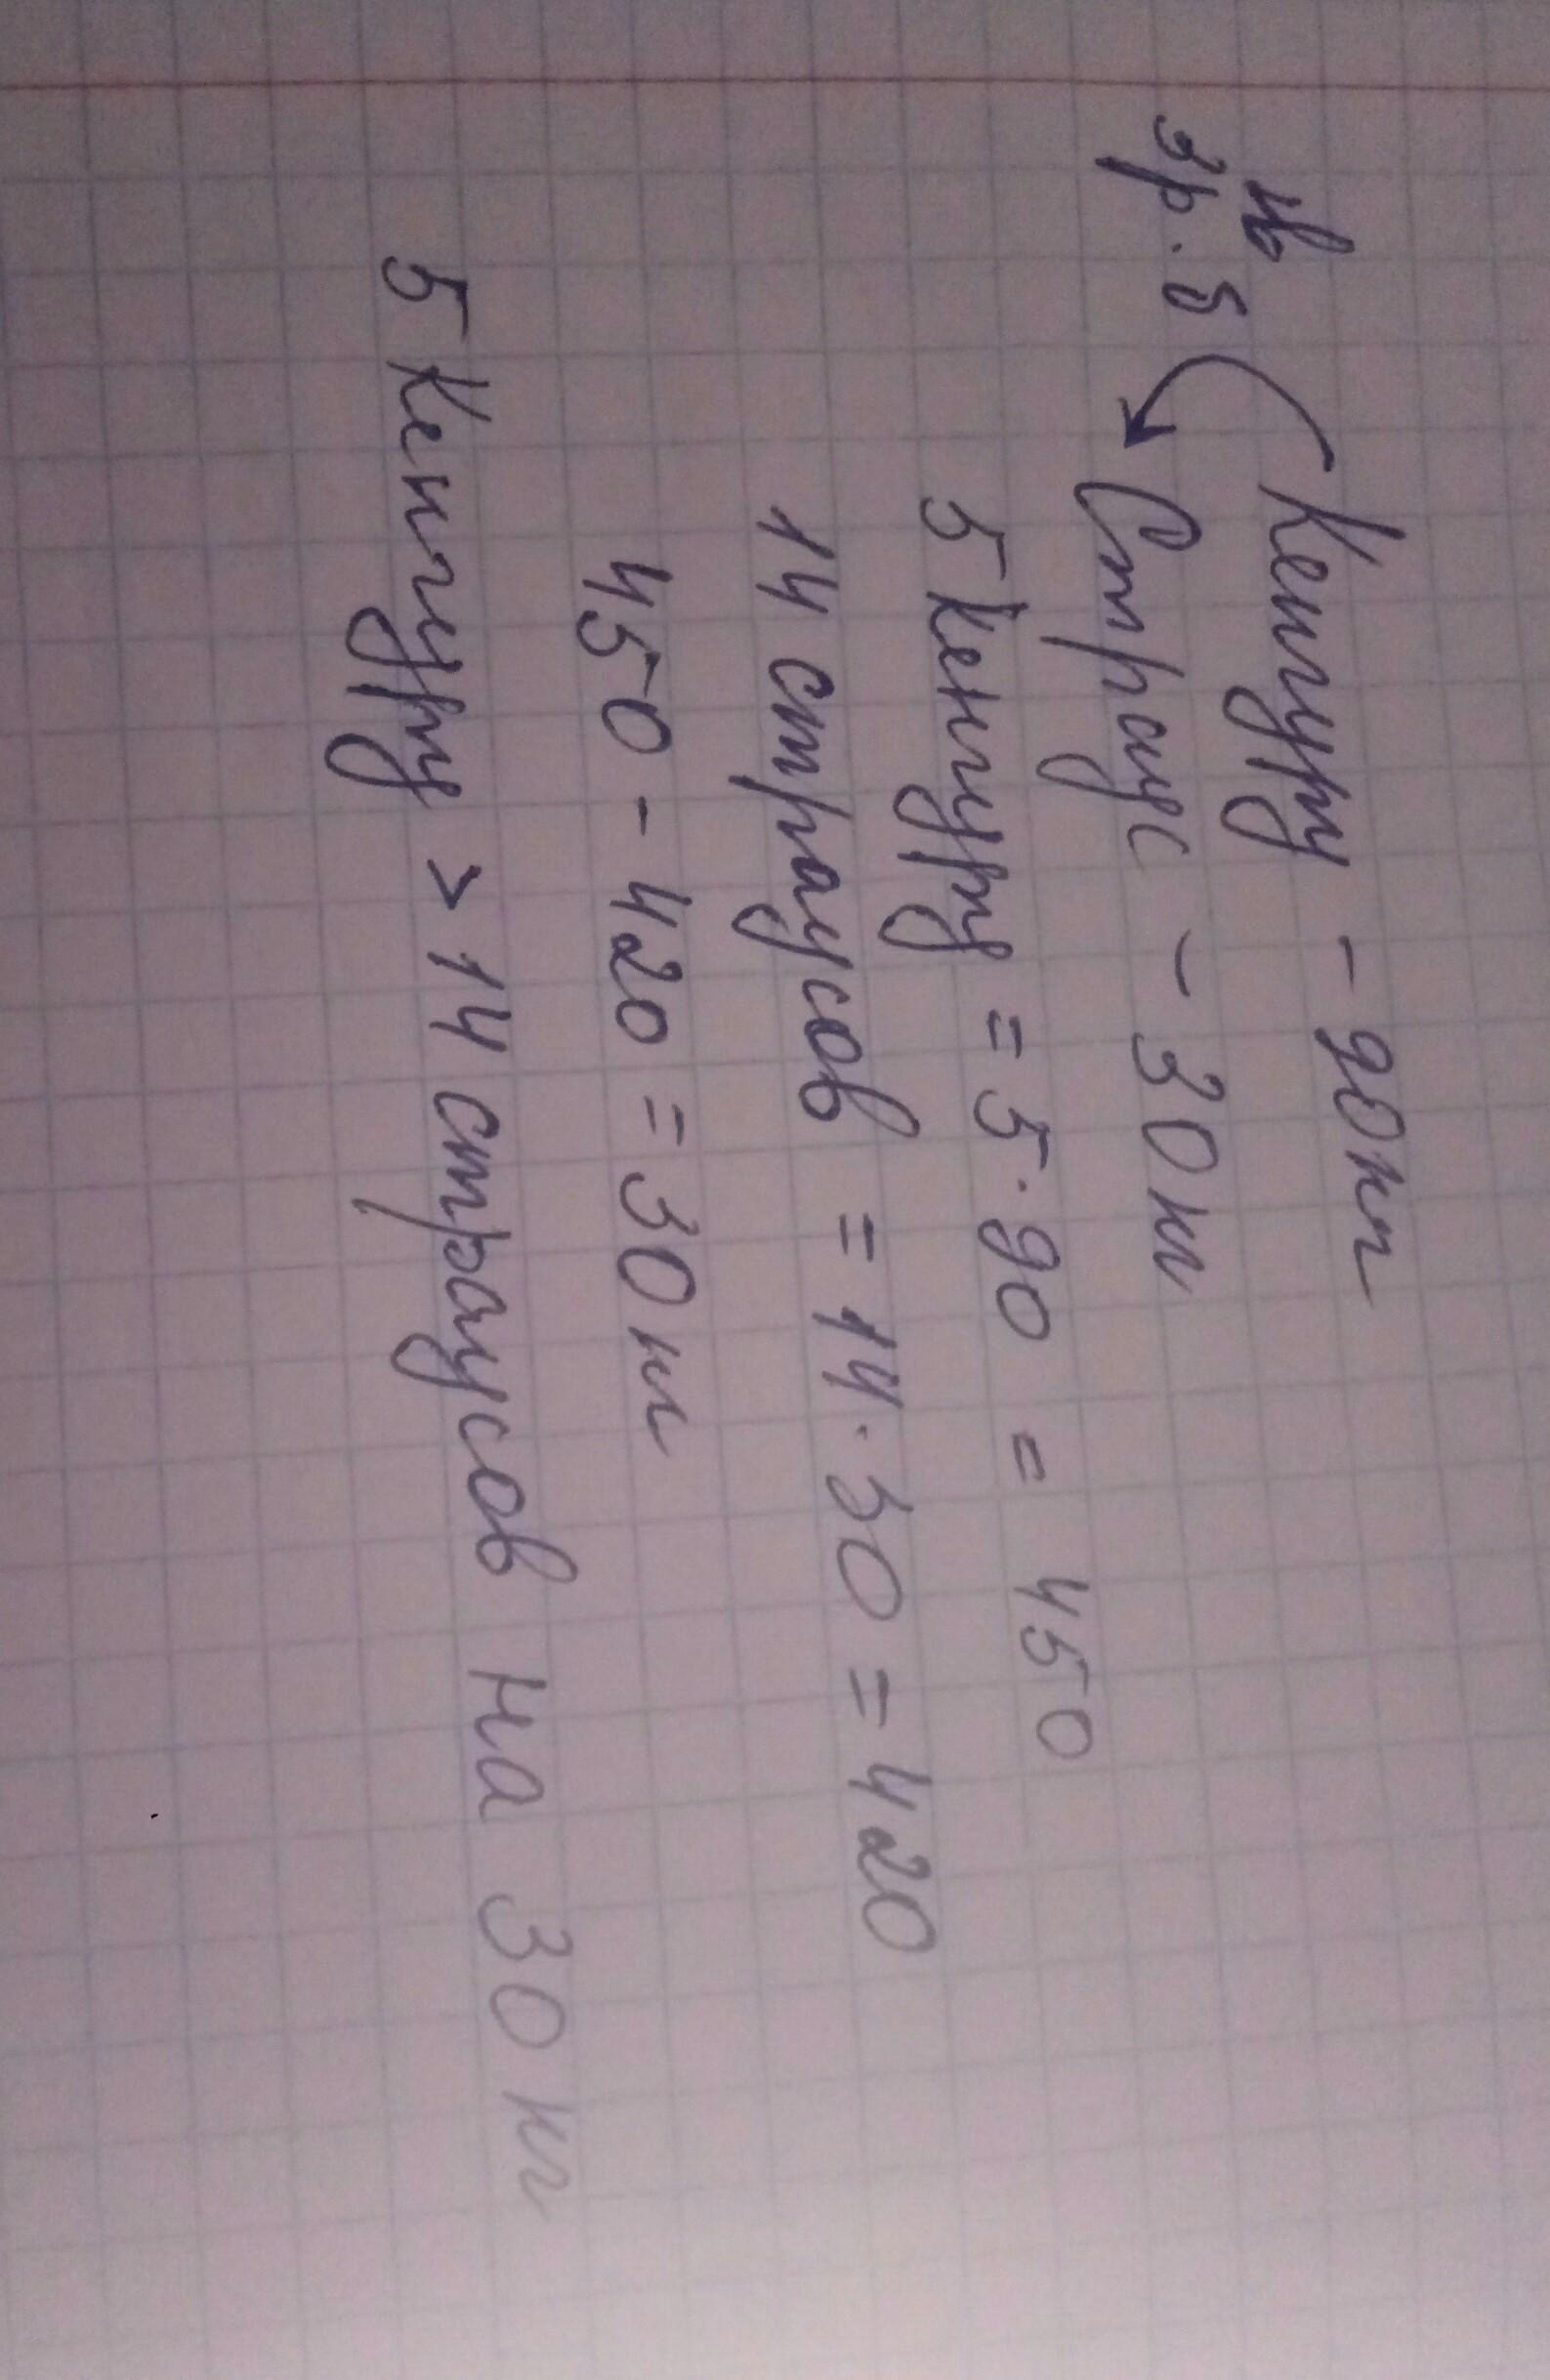 Кенгуру - 90 кг
в 3р. б
Страус - 30 кг
5 Кенгуру = 5 · 90 = 450
14 страусов = 14 · 30 = 420
450 - 420 = 30 кг
5 Кенгуру > 14 страусов на 30 кг